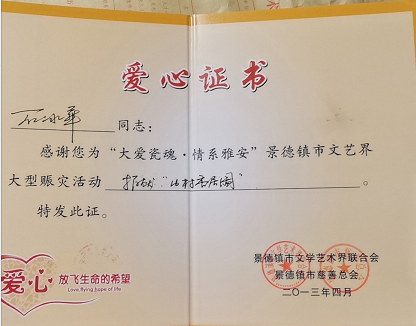 爱心证书
石冰華 同志：
感谢您为“大爱瓷魂·情系雅安”景德镇市文艺界
大型赈灾活动 “山村秀居图” 。
特发此证。
景德镇市文学艺术界联合会
景德镇市慈善总会
二〇一三年四月
爱心 放飞生命的希望
Love, flying hope of life